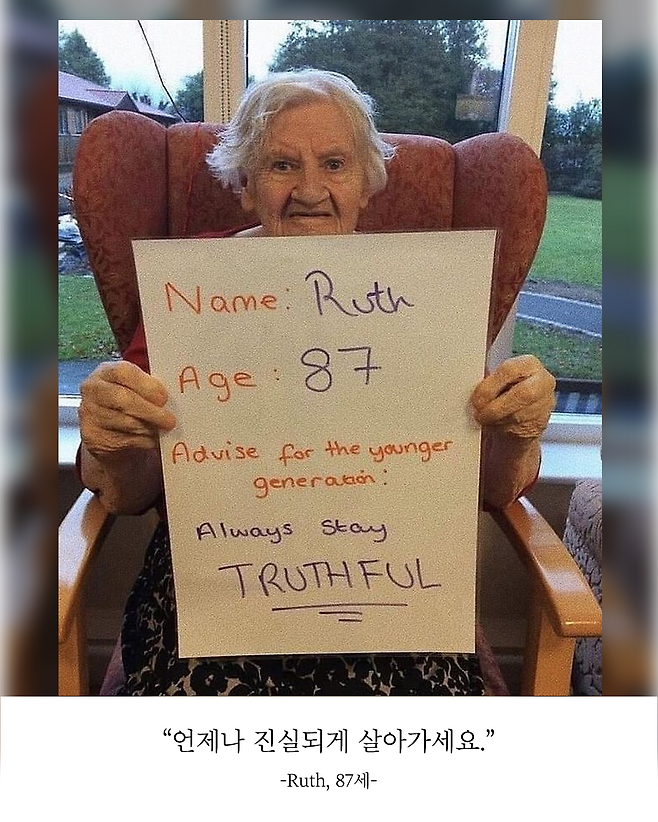 Name: Ruth
Age: 87
Advise for the younger
generation:
Always Stay
TRUTHFUL
“언제나 진실되게 살아가세요.”
-Ruth, 87세-